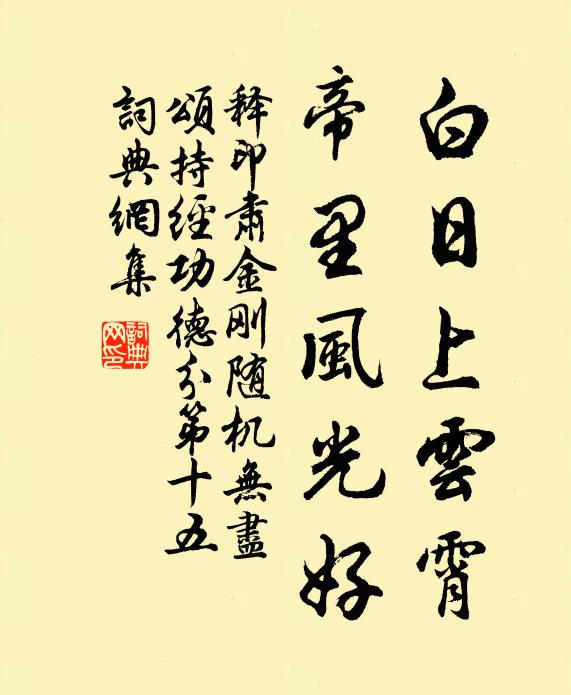 白日上雲霄
帝里風光好
释印肅金刚随机無盡
頌持經功德分第十五
詞典網集
詞典网印